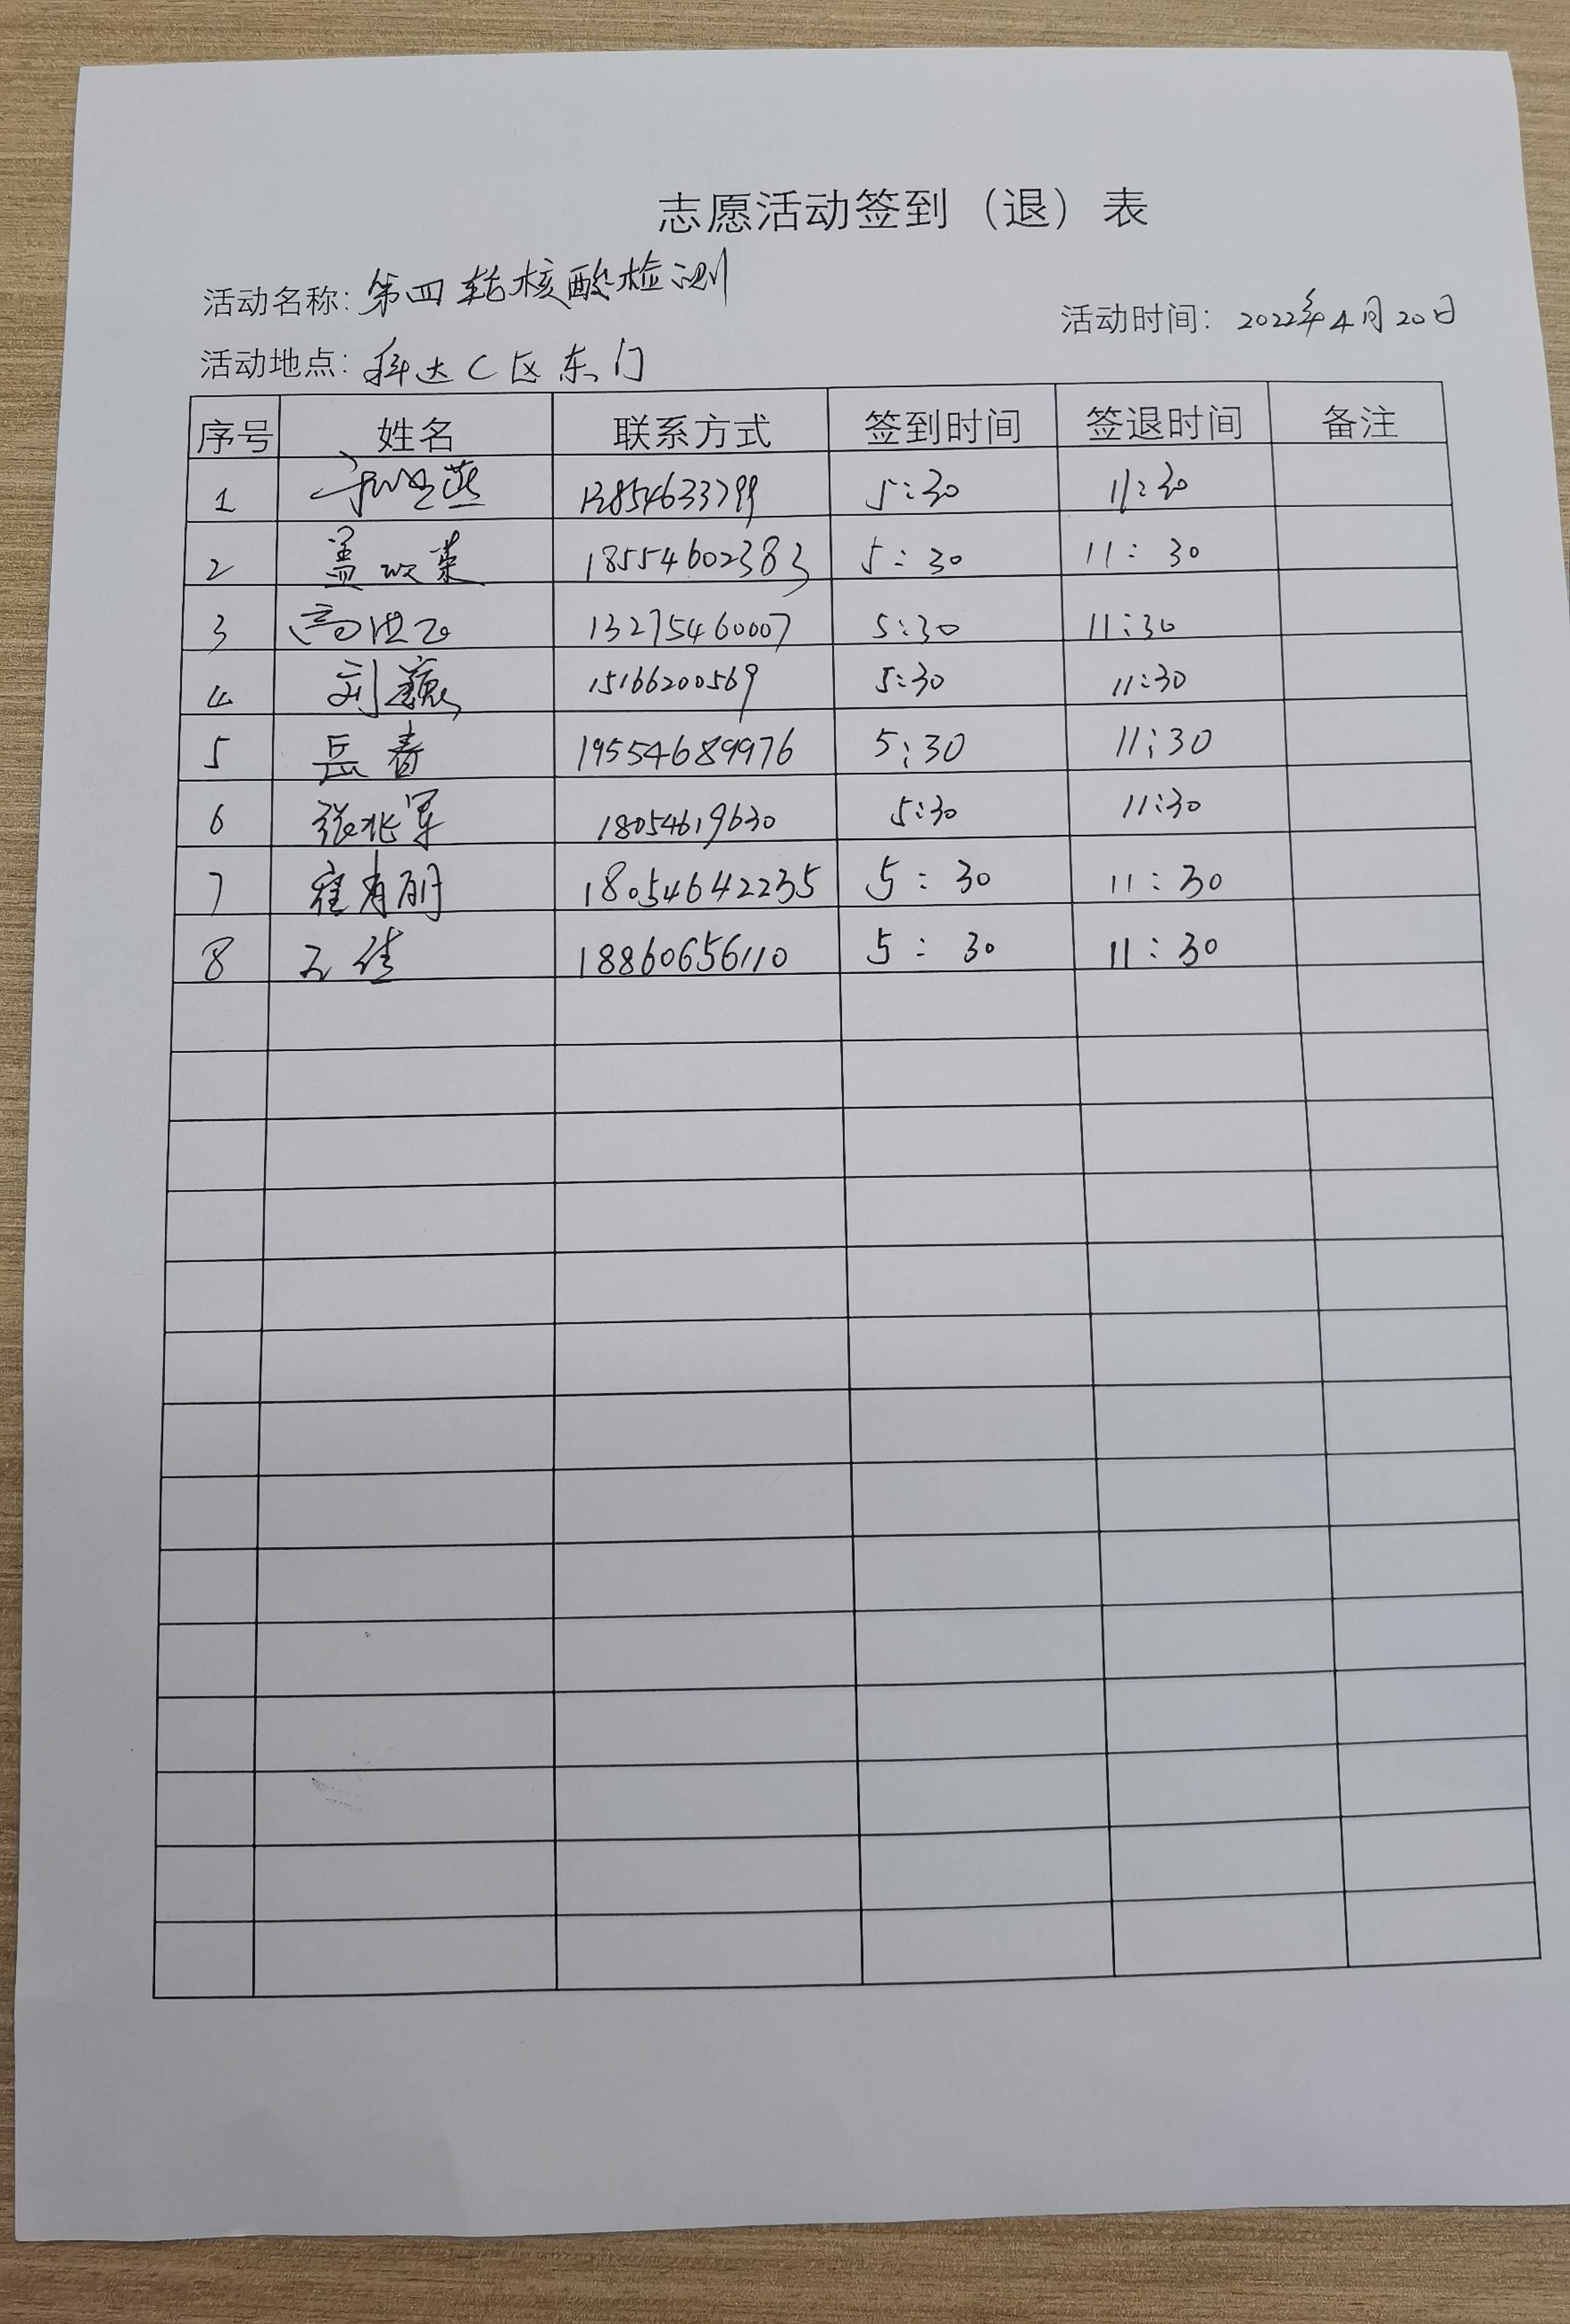 志愿活动签到（退）表
活动名称：第四轮核酸检测
活动时间：2022年4月20日
活动地点：科达C区东门
序号 姓名 联系方式 签到时间 签退时间 备注
1 13854633799 5:30 11:30
2 盖欢荣 18554602383 5:30 11:30
3 高洪 13275460007 5:30 11:30
4 刘巍 15166200569 5:30 11:30
5 岳春 19554689976 5:30 11:30
6 张兆军 18054619630 5:30 11:30
7 崔有丽 18054642235 5:30 11:30
8 18860656110 5:30 11:30